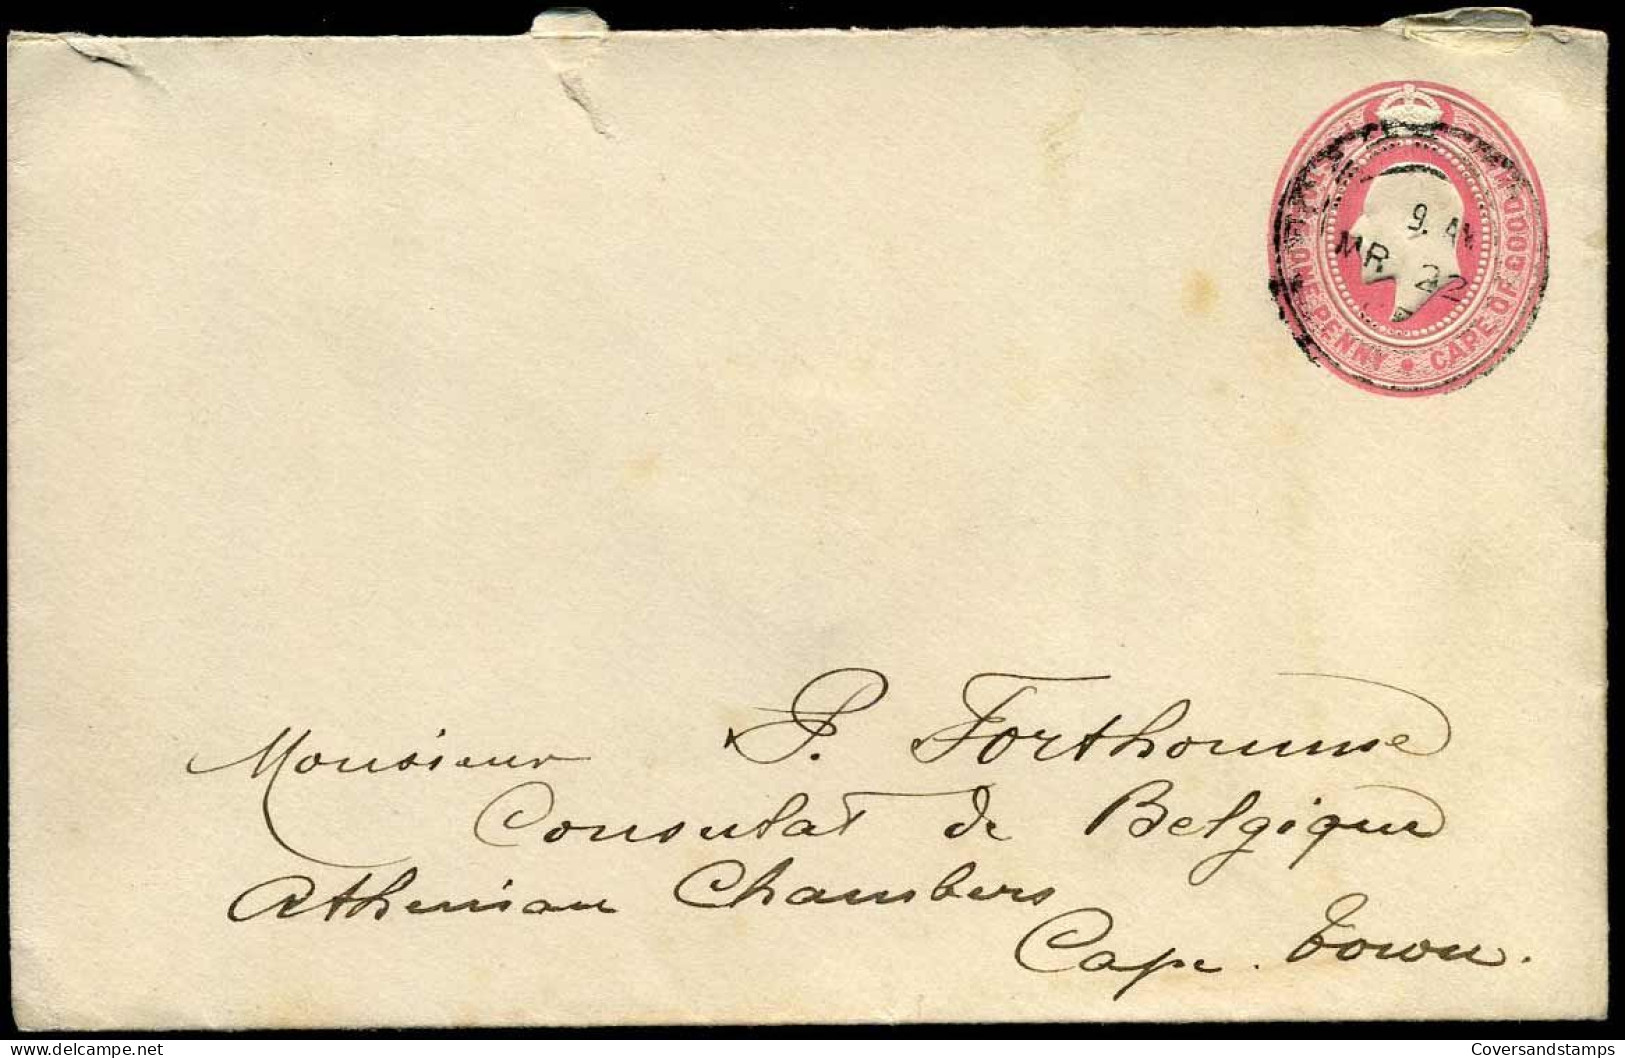 POSTAGE ONE PENNY • CAPE OF GOOD HOPE
9. AM
MR 22
Monsieur P. Forthomme
Consulat de Belgique
Athenian Chambers
Cape Town.
www.delcampe.net
Coversandstamps